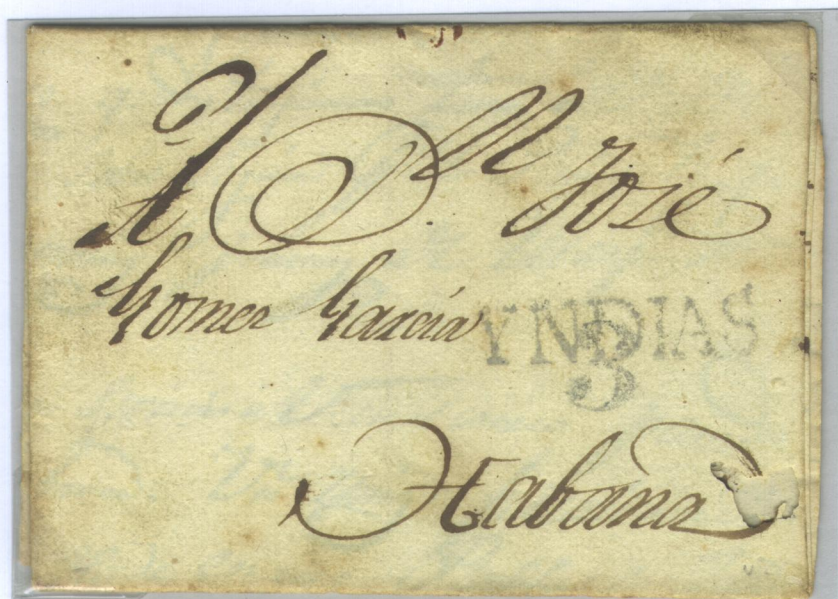 A D.ⁿ José
Gomez García
YNDIAS
3
Habana